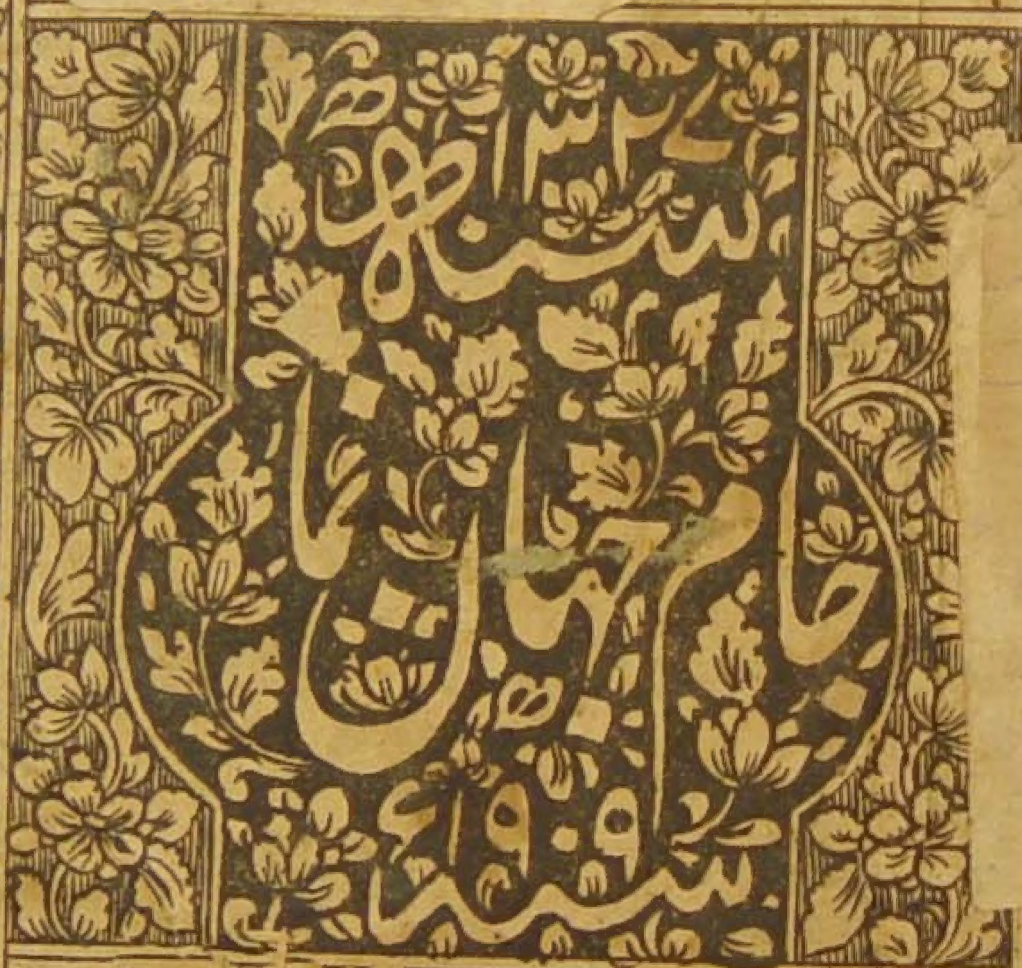 سنہ ۱۳۲۷ھ
جام جہان نما
سنہ ۱۹۰۹ء